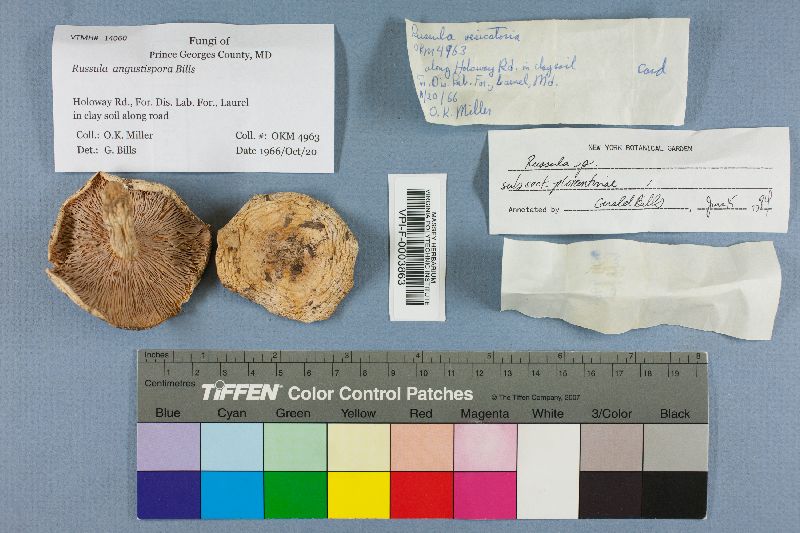 VTMH# 14060
Fungi of
Prince Georges County, MD
Russula angustispora Bills
Holoway Rd., For. Dis. Lab. For., Laurel
in clay soil along road
Coll.: O.K. Miller Coll. #: OKM 4963
Det.: G. Bills Date 1966/Oct/20
Russula vesicatoria
OKM 4963
along Holoway Rd. in clay soil
Fr. Dis. Lab. For., Laurel, Md.
Card
/20/66
O.K. Miller
NEW YORK BOTANICAL GARDEN
Russula sp.
subsect. plorantinae
Annotated by Gerald Bills, June 5 1984
MASSEY HERBARIUM
VIRGINIA POLYTECHNIC INSTITUTE
VPI-F-0003863
Inches 1 2 3 4 5 6 7 8
Centimetres 1 2 3 4 5 6 7 8 9 10 11 12 13 14 15 16 17 18 19
TIFFEN Color Control Patches
© The Tiffen Company, 2007
Blue Cyan Green Yellow Red Magenta White 3/Color Black